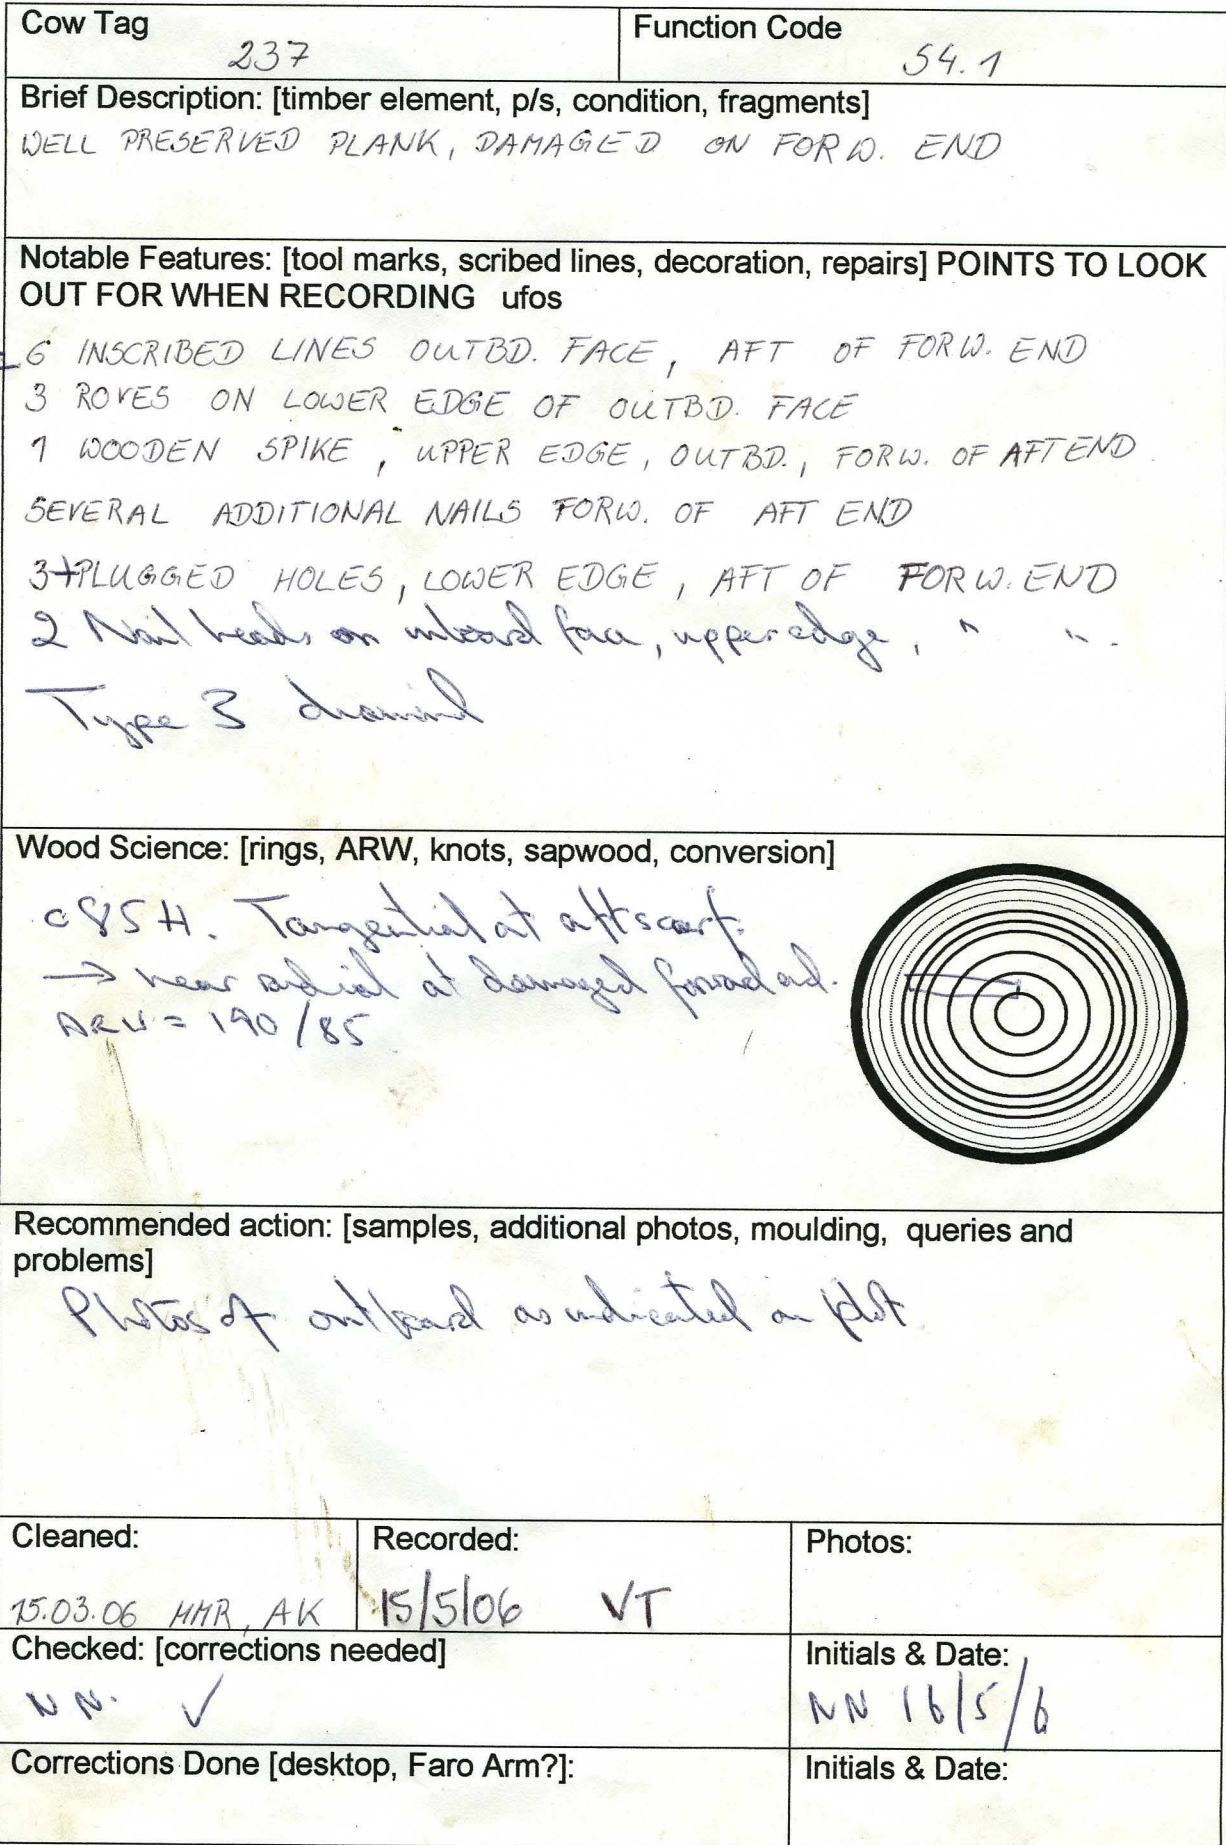 Cow Tag
237
Function Code
S4.1
Brief Description: [timber element, p/s, condition, fragments]
WELL PRESERVED PLANK, DAMAGED ON FORW. END
Notable Features: [tool marks, scribed lines, decoration, repairs] POINTS TO LOOK
OUT FOR WHEN RECORDING ufos
6 INSCRIBED LINES OUTBD. FACE, AFT OF FORW. END
3 ROVES ON LOWER EDGE OF OUTBD. FACE
1 WOODEN SPIKE, UPPER EDGE, OUTBD., FORW. OF AFT END.
SEVERAL ADDITIONAL NAILS FORW. OF AFT END
3+PLUGGED HOLES, LOWER EDGE, AFT OF FORW. END
2 Nail heads on inboard face, upper edge, " ".
Type 3 diamond
Wood Science: [rings, ARW, knots, sapwood, conversion]
c85H. Tangential at aft scarf.
→ near radial at damaged forward end.
ARW = 190/85
Recommended action: [samples, additional photos, moulding, queries and
problems]
Photos of outboard as indicated on plot
Cleaned:
15.03.06 HMR, AK
Recorded:
15/5/06 VT
Photos:
Checked: [corrections needed]
NN. ✓
Initials & Date:
NN 16/5/6
Corrections Done [desktop, Faro Arm?]:
Initials & Date: